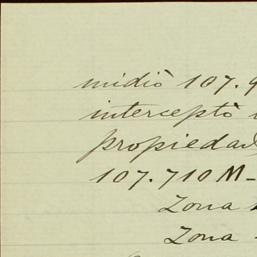 midió 107.9
interceptó
propiedad
107.710 M-
Zona
Zona